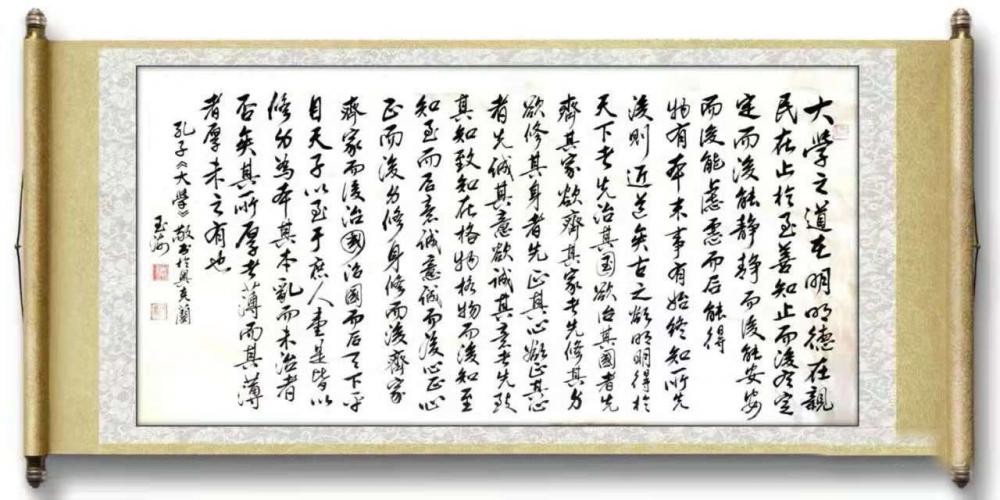 大学之道在明明德在親
民在止於至善知止而後有定
定而後能静静而後能安安
而後能慮慮而后能得
物有本末事有始终知所先
後則近道矣古之欲明明得於
天下者先治其国欲治其國者先
齊其家欲齊其家者先修其身
欲修其身者先正其心欲正其心
者先诚其意欲诚其意者先致
其知致知在格物格物而後知至
知至而后意诚意诚而後心正心
正而後身修身修而後齊家
齊家而後治國治國而后天下平
自天子以至于庶人壹是皆以
修身為本其本亂而未治者
否矣其所厚者薄而其薄
者厚未之有也
孔子《大学》敬书於奥克蘭